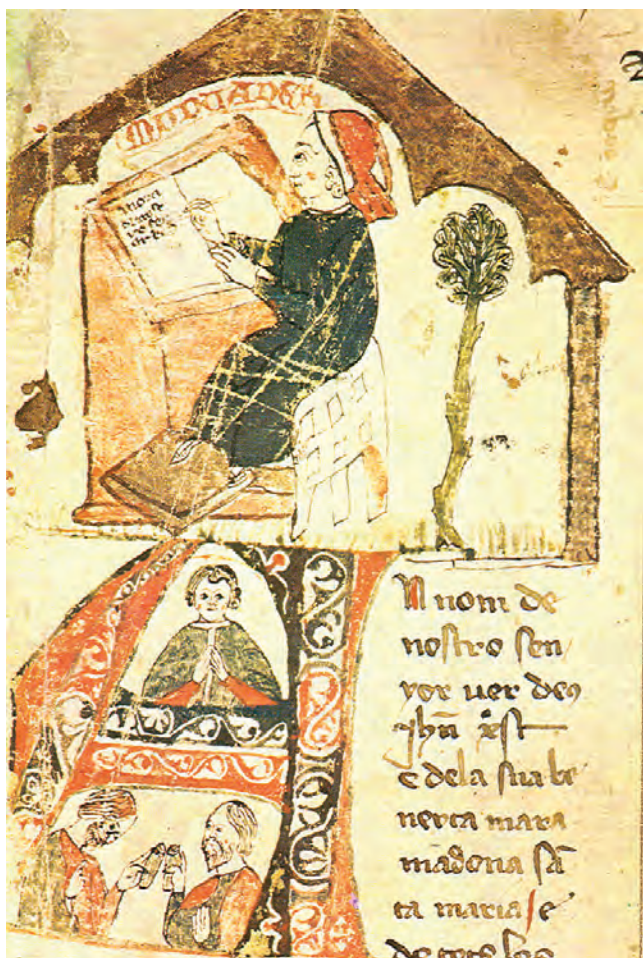 MVNTANER
N nom de
nostro sen
yor uer deꝯ
yhū xst
e dela sua be
neyta mara
madona sā
ta maria e
de tots los